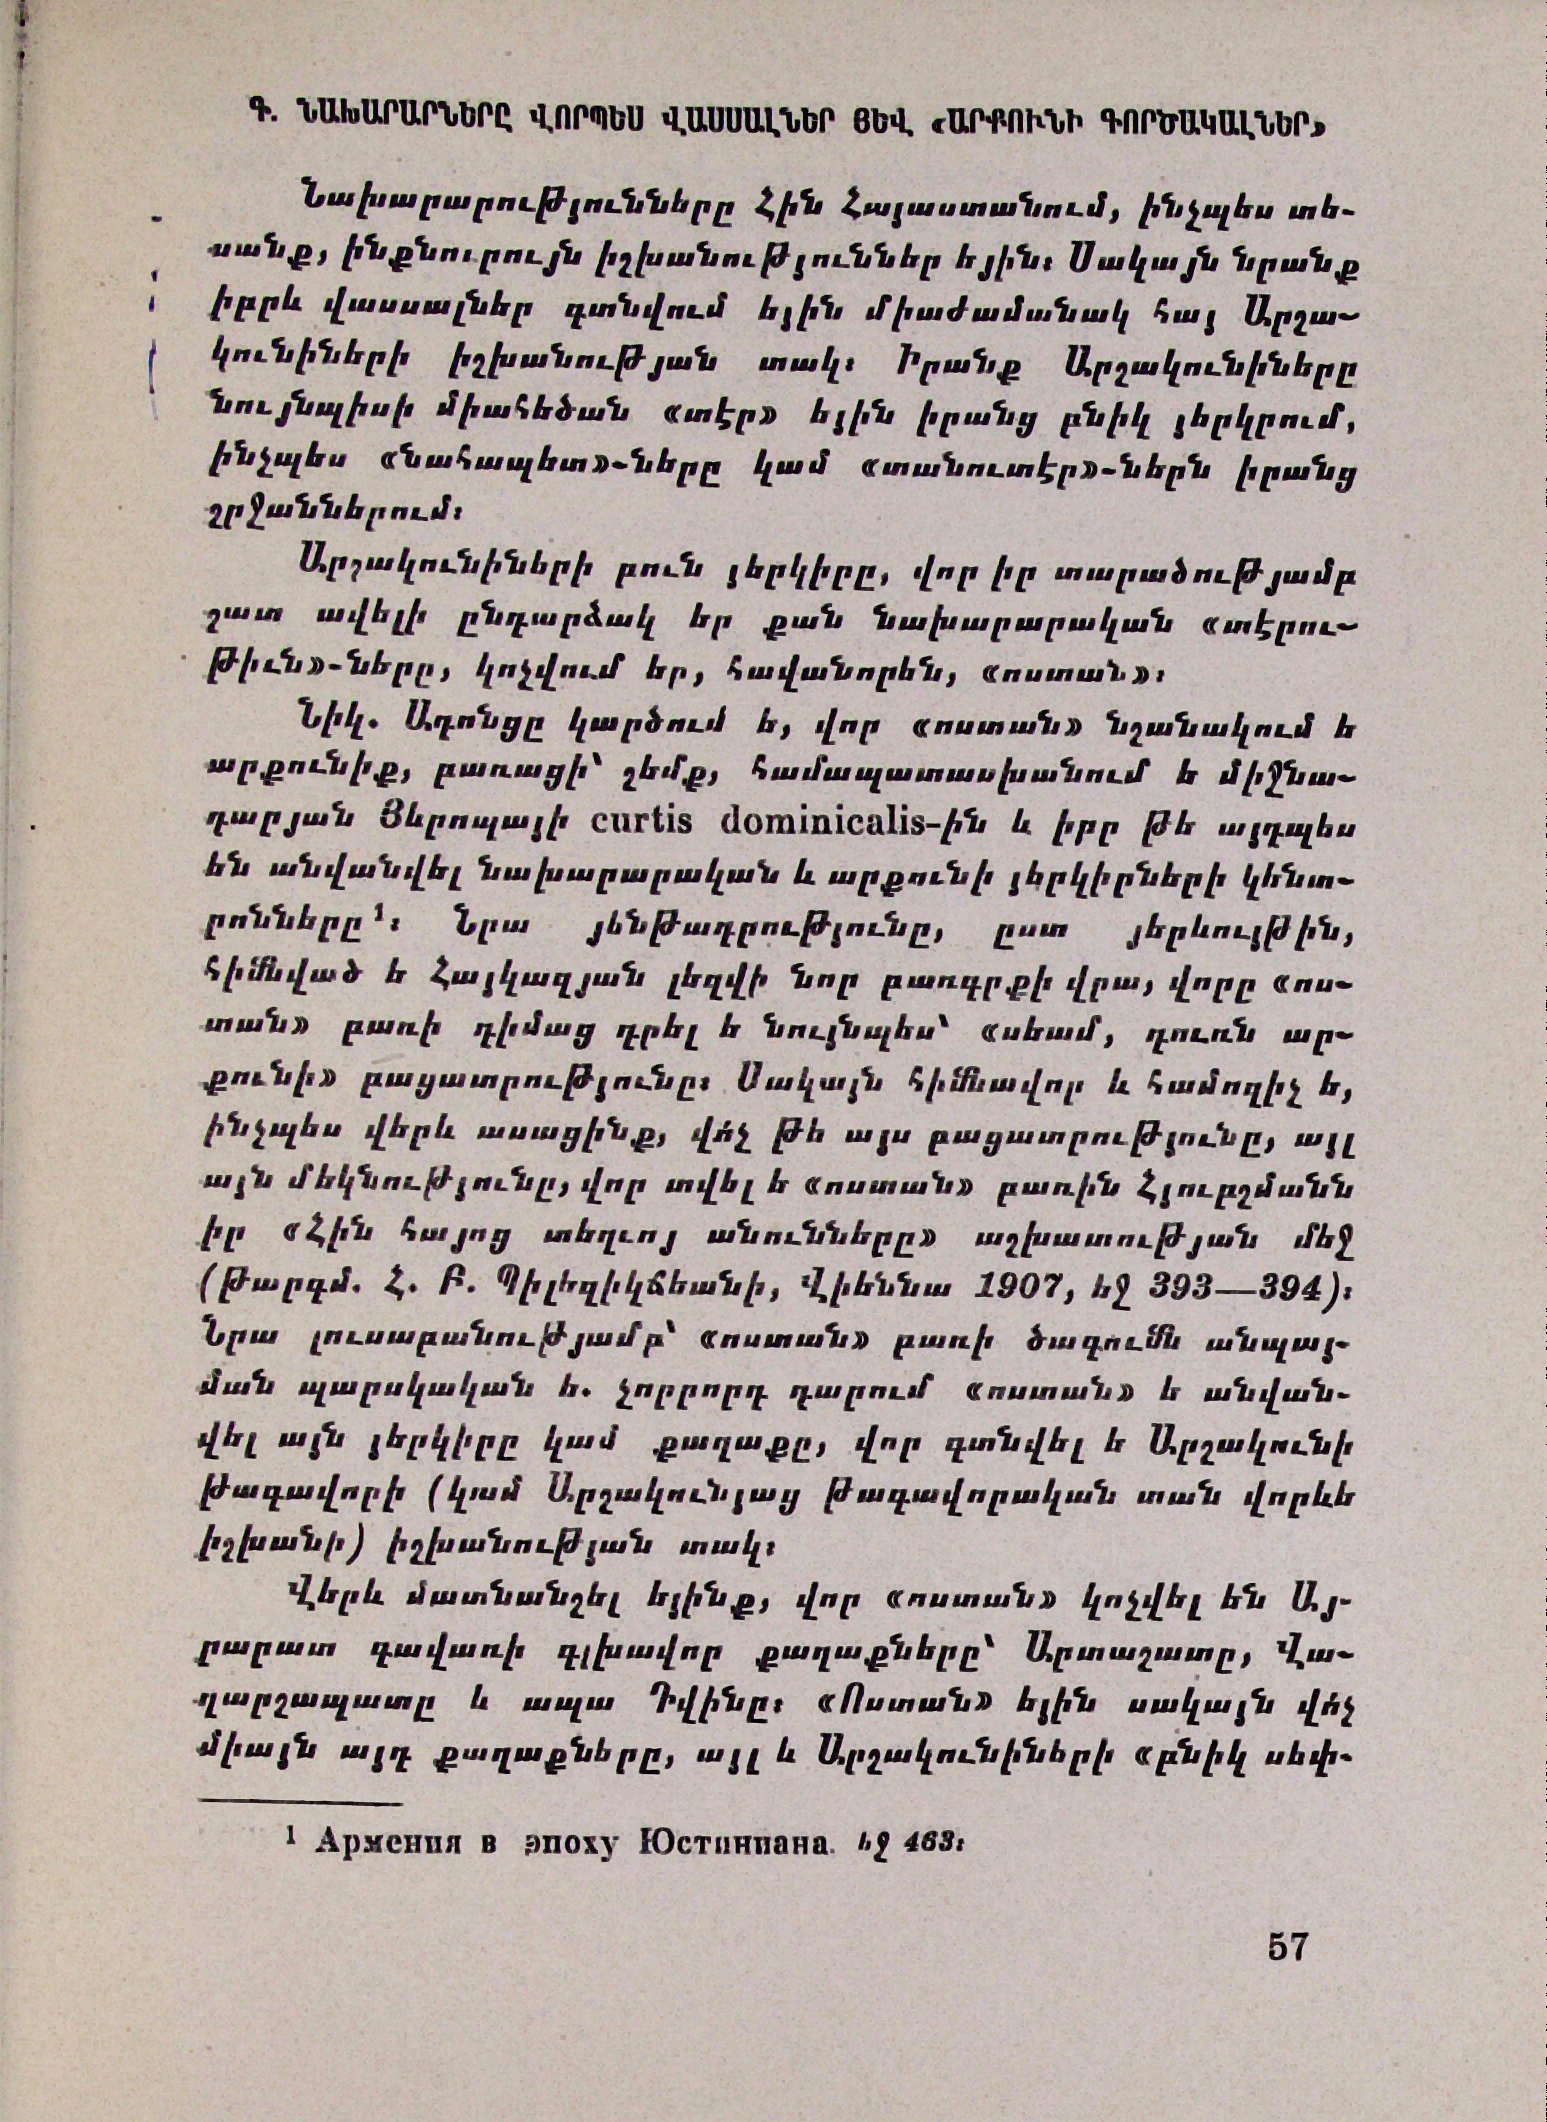 Գ. ՆԱԽԱՐԱՐՆԵՐԸ ՎՈՐՊԵՍ ՎԱՍՍԱԼՆԵՐ ՅԵՎ «ԱՐՔՈՒՆԻ ԳՈՐԾԱԿԱԼՆԵՐ»
Նախարարությունները Հին Հայաստանում, ինչպես տե-
սանք, ինքնուրույն իշխանություններ եյին։ Սակայն նրանք
իբրև վասսալներ գտնվում եյին միաժամանակ հայ Արշա-
կունիների իշխանության տակ։ Իրանք Արշակունիները
նույնպիսի միահեծան «տէր» եյին իրանց բնիկ յերկրում,
ինչպես «նահապետ»-ները կամ «տանուտէր»-ներն իրանց
շրջաններում։
Արշակունիների բուն յերկիրը, վոր իր տարածությամբ
շատ ավելի ընդարձակ եր քան նախարարական «տէրու-
թիւն»-ները, կոչվում եր, հավանորեն, «ոստան»։
Նիկ. Ադոնցը կարծում ե, վոր «ոստան» նշանակում ե
արքունիք, բառացի՝ շեմք, համապատասխանում ե միջնա-
դարյան Յեվրոպայի curtis dominicalis-ին և իբր թե այդպես
են անվանվել նախարարական և արքունի յերկիրների կենտ-
րոնները¹։ Նրա յենթադրությունը, ըստ յերևույթին,
հիմնված ե Հայկազյան լեզվի նոր բառգրքի վրա, վորը «ոս-
տան» բառի դիմաց դրել ե նույնպես՝ «սեամ, դուռն ար-
քունի» բացատրությունը։ Սակայն հիմնավոր և համոզիչ ե,
ինչպես վերև ասացինք, վո՛չ թե այս բացատրությունը, այլ
այն մեկնությունը, վոր տվել ե «ոստան» բառին Հյուբշմանն
իր «Հին հայոց տեղւոյ անունները» աշխատության մեջ
(թարգմ. Հ. Բ. Պիլեզիկճեանի, Վիեննա 1907, եջ 393—394)։
Նրա լուսաբանությամբ՝ «ոստան» բառի ծագումն անպայ-
ման պարսկական ե. չորրորդ դարում «ոստան» ե անվան-
վել այն յերկիրը կամ քաղաքը, վոր գտնվել ե Արշակունի
թագավորի (կամ Արշակունյաց թագավորական տան վորևե
իշխանի) իշխանության տակ։
Վերև մատնանշել եյինք, վոր «ոստան» կոչվել են Այ-
րարատ գավառի գլխավոր քաղաքները՝ Արտաշատը, Վա-
ղարշապատը և ապա Դվինը։ «Ոստան» եյին սակայն վո՛չ
միայն այդ քաղաքները, այլ և Արշակունիների «բնիկ սեփ-
¹ Армения в эпоху Юстиниана. եջ 463։
57